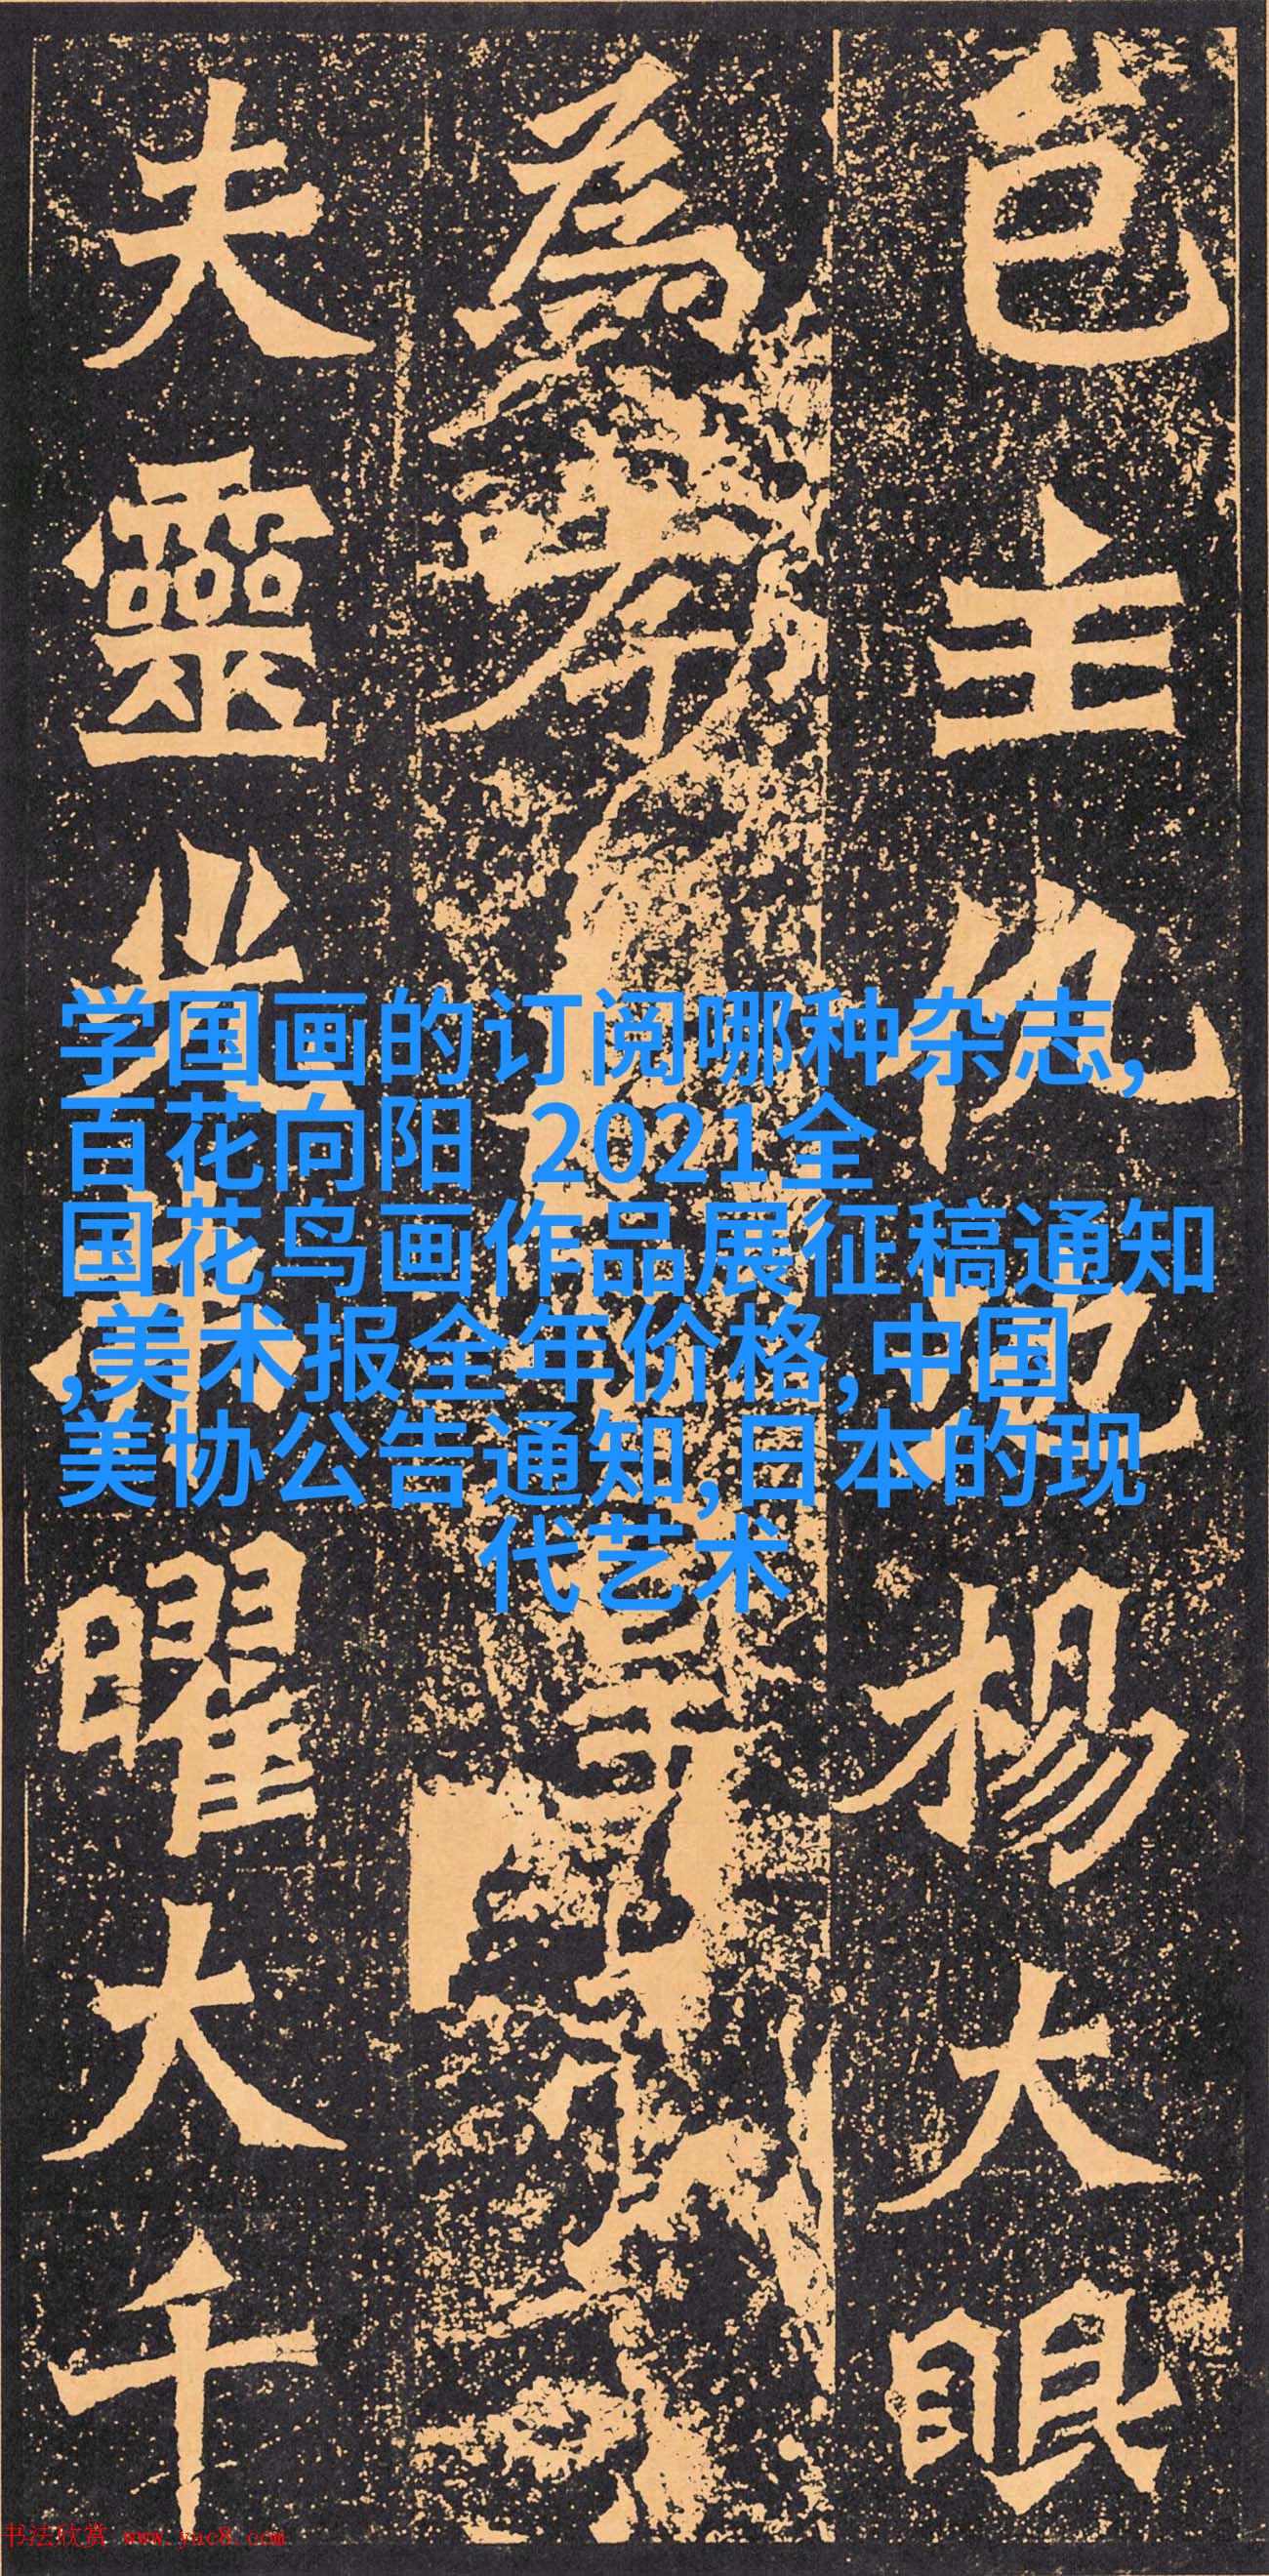 邑主仇池楊大眼
為孝
夫靈光弗曜大千
学国画的订阅哪种杂志,
百花向阳 2021全
国花鸟画作品展征稿通知
,美术报全年价格,中国
美协公告通知,日本的现
代艺术
书法欣赏 www.yac8.com